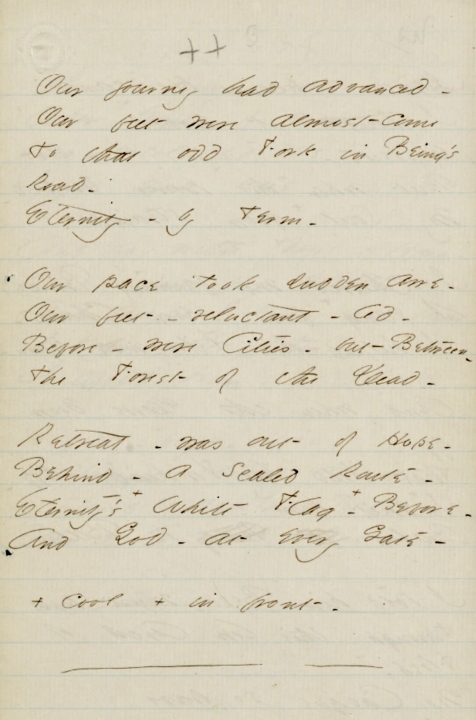 ++
Our journey had advanced -
Our feet were almost come
To that odd Fork in Being's
Road -
Eternity - by Term -
Our pace took sudden awe -
Our feet - reluctant - led -
Before - were Cities - but Between -
The Forest of the Dead -
Retreat - was out of Hope -
Behind - a Sealed Route -
Eternity's + White Flag + - Before -
And God - at every Gate -
+ Cool + in front -